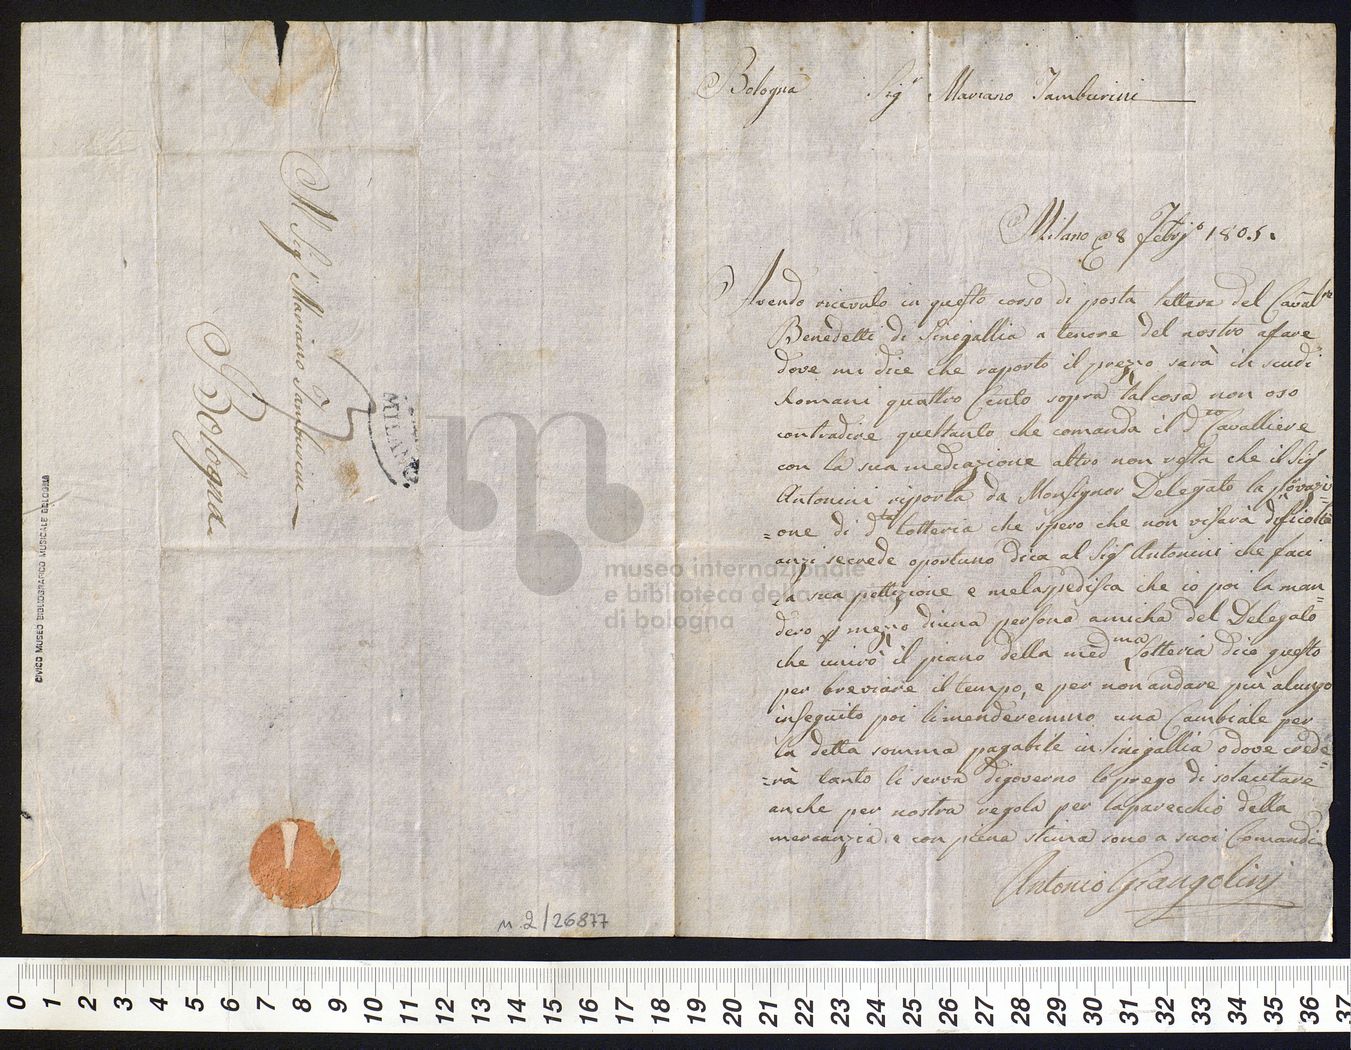 Al Sig.r Mariano Tamburini
Bologna
3
MILANO.
CIVICO MUSEO BIBLIOGRAFICO MUSICALE BOLOGNA
n. 2/26877
Bologna Sig.r Mariano Tamburini
Milano @ 8 Febrj.o 1805.
Avendo ricevuto in questo corso di posta lettera del Caval.re
Benedetti di Sinigallia a tenore del nostro afare
dove mi dice che raporto il prezzo sarà in scudi
Romani quattro Cento sopra tal cosa non oso
contradire quultanto che comanda il d.to Cavalliere
con la sua mediazione altro non resta che il Sig.r
Antonini riporta da Monsignor Delegato la provazi-
=one di d.ta lotteria che spero che non visarà dificoltà
anzi secrede oportuno dica al Sig.r Antonini che faci
la sua pettizione e melaspedisca che io poi la man=
derò p mezzo diuna persona amicha del Delegato
che unirò il piano della med.ma Lotteria dico questo
per breviare il tempo, e per non andare più alungo
inseguito poi limanderemmo una Cambiale per
la detta somma pagabile in Sinigallia o dove crede=
=rà tanto li serva digoverno lo prego di solecitare
anche per nostra regola per laparecchio della
mercanzia, e con piena stima sono a suoi Comandi
Antonio Giangolini
museo internazionale
e biblioteca della musica
di bologna
0 1 2 3 4 5 6 7 8 9 10 11 12 13 14 15 16 17 18 19 20 21 22 23 24 25 26 27 28 29 30 31 32 33 34 35 36 37